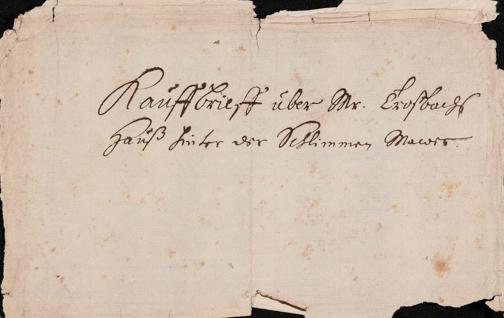 Kauffbrieff über Mr. Crosbachs
Hauß hinter der Schlimmen Mauer.